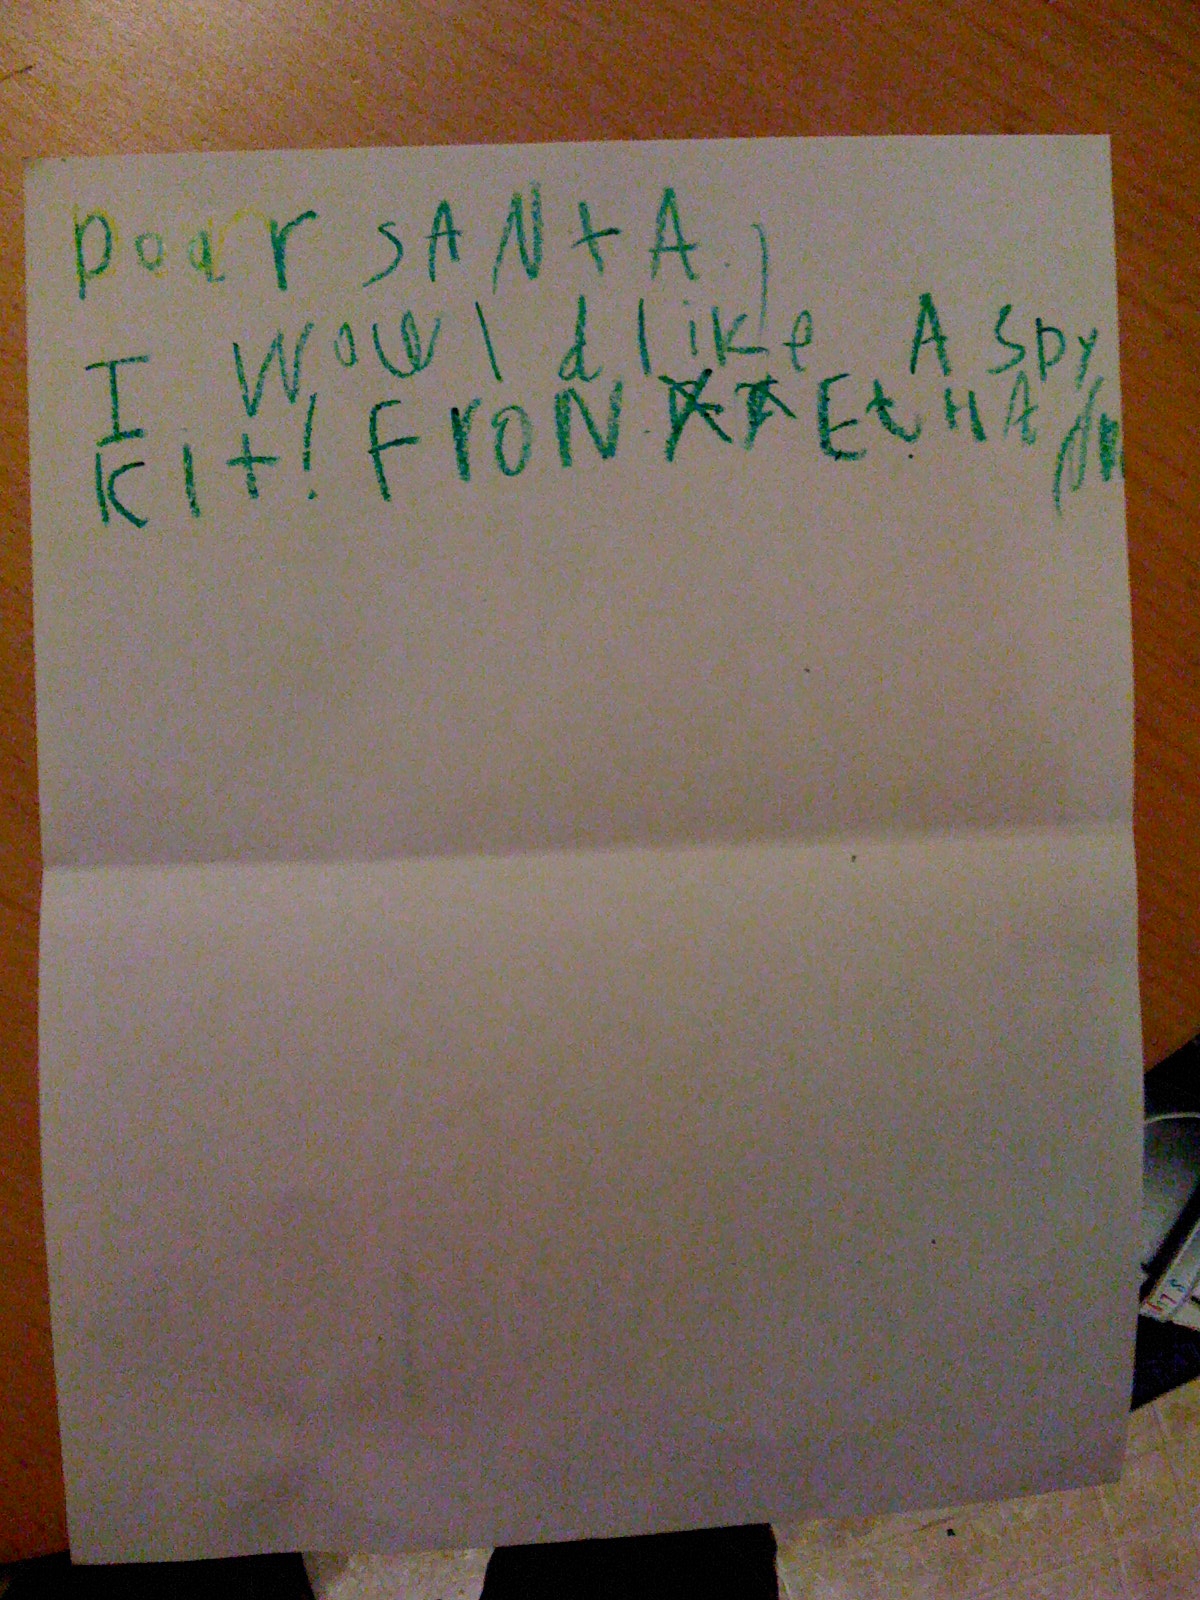 Doar SANtA,
I Would like A Spy
Kit! FroN EtHAN